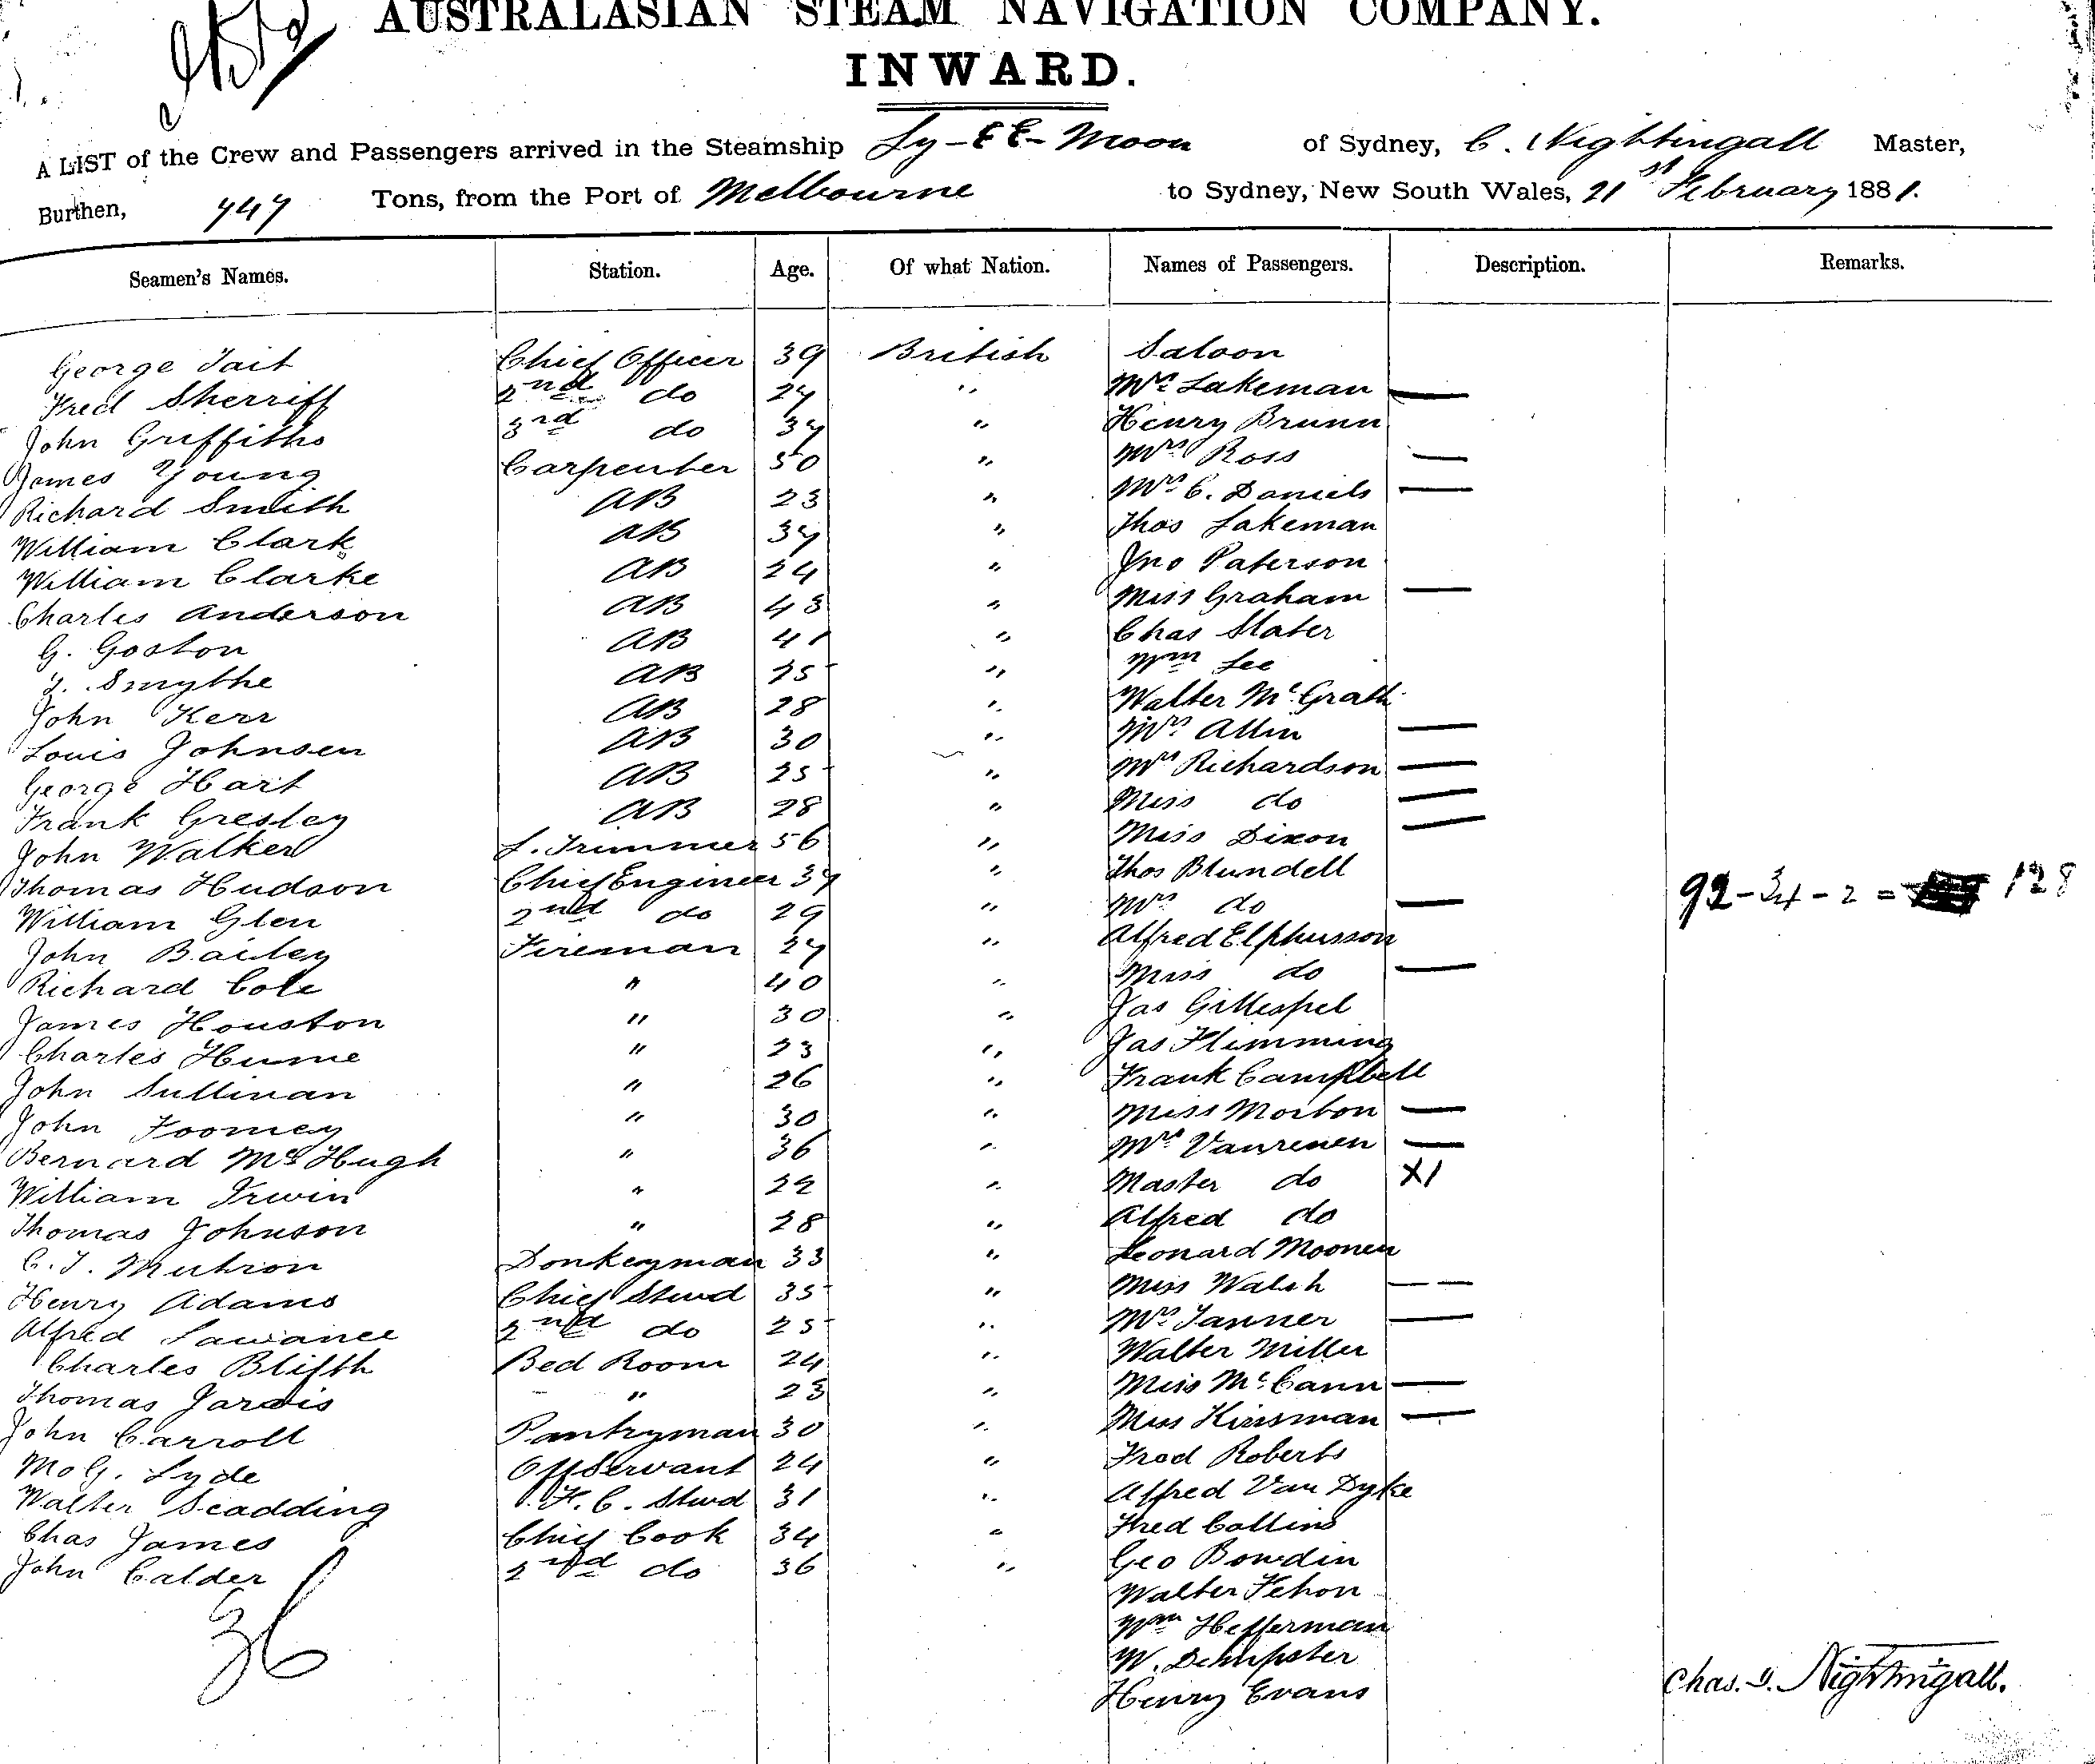 AUSTRALASIAN STEAM NAVIGATION COMPANY.
INWARD.
A LIST of the Crew and Passengers arrived in the Steamship Ly-EE-Moon of Sydney, C. Nightingall Master,
Burthen, 747 Tons, from the Port of Melbourne to Sydney, New South Wales, 21st February 1881.
Seamen's Names. Station. Age. Of what Nation. Names of Passengers. Description. Remarks.
George Tait Chief Officer 39 British Saloon
Fred Sherriff 2nd do 27 " Mrs Lakeman —
John Griffiths 3rd do 37 " Henry Brunn
James Young Carpenter 50 " Mrs Ross —
Richard Smith AB 23 " Mrs C. Daniels —
William Clark AB 37 " Thos Lakeman
William Clarke AB 24 " Jno Paterson
Charles Anderson AB 43 " Miss Graham —
G. Goston AB 41 " Chas Slater
Smythe AB 25 " Wm Lee
John Kerr AB 28 " Walter McGrath
Louis Johnsen AB 30 " Mrs Allin —
George Hart AB 25 " Mrs Richardson —
Frank Gresley AB 28 " Miss do —
John Walker L. Trimmer 56 " Miss Dixon —
Thomas Hudson Chief Engineer 37 " Thos Blundell
William Glen 2nd do 29 " Mrs do — 92-34-2 = 128
John Bailey Fireman 27 " Alfred Elphusson
Richard Cole " 40 " Miss do —
James Houston " 30 " Jas Gillespel
Charles Hume " 23 " Jas Flimming
John Sullivan " 26 " Frank Campbell
John Toomey " 30 " Miss Morton —
Bernard McHugh " 36 " Mrs Vanrenen —
William Irwin " 22 " Master do X1
Thomas Johnson " 28 " Alfred do
C. J. Donkeyman 33 " Leonard Moonen
Henry Adams Chief Stwd 35 " Miss Walsh —
Alfred 2nd do 25 " Mrs Tanner —
Charles Bed Room 24 " Walter Miller
Thomas Jarvis " 23 " Miss McCann —
John Carroll Pantryman 30 " Miss Kinsman —
Lyde Off Servant 24 " Fred Roberts
Walter Scadding F. C. Stwd 31 " Alfred Van Dyke
Chas James Chief Cook 34 " Fred Collins
John Calder 2nd do 36 " Geo Bowdin
Walter Fehon
36 Wm Hefferman
W. Dempster
Henry Evans
Chas. Nightingall.